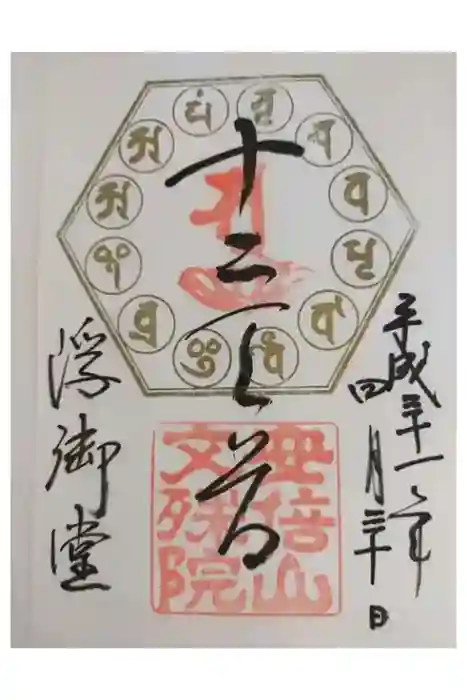 平成三十一年
四月三十日
十二天尊
安倍山
文殊院
浮御堂